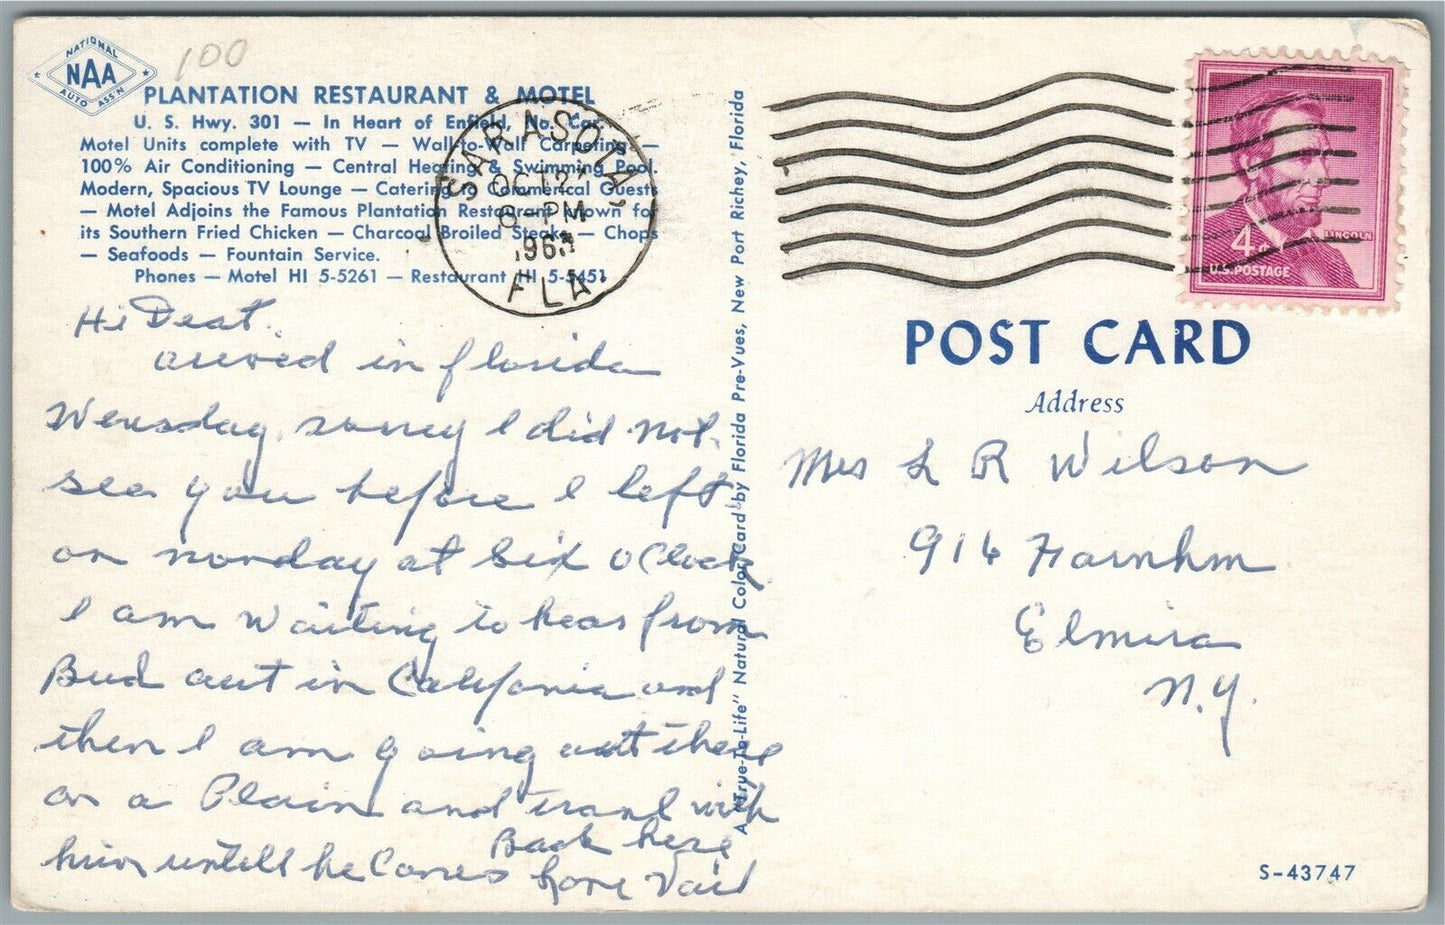 NATIONAL
NAA
AUTO ASS'N
100
PLANTATION RESTAURANT & MOTEL
U. S. Hwy. 301 — In Heart of Enfield, No. Car.
Motel Units complete with TV — Wall-to-Wall Carpeting —
100% Air Conditioning — Central Heating & Swimming Pool.
Modern, Spacious TV Lounge — Catering Commercial Guests
— Motel Adjoins the Famous Plantation Restaurant known for
its Southern Fried Chicken — Charcoal Broiled Steaks — Chops
— Seafoods — Fountain Service.
Phones — Motel HI 5-5261 — Restaurant HI 5-5451
SARASOTA
OCT
PM
196
FLA
Hi
arived in florida
Wensday, sorrey I did not
see you before I left
on monday at six oClock
I am waiting to hear from
Bud out in California and
then I am going out there
on a Plain and with
him untell he Comes Back here
A "True-To-Life" Natural Color Card by Florida Pre-Vues, New Port Richey, Florida
4¢
LINCOLN
U.S. POSTAGE
POST CARD
Address
Mrs L R Wilson
916 Farnhm
Elmira
N.Y.
S-43747